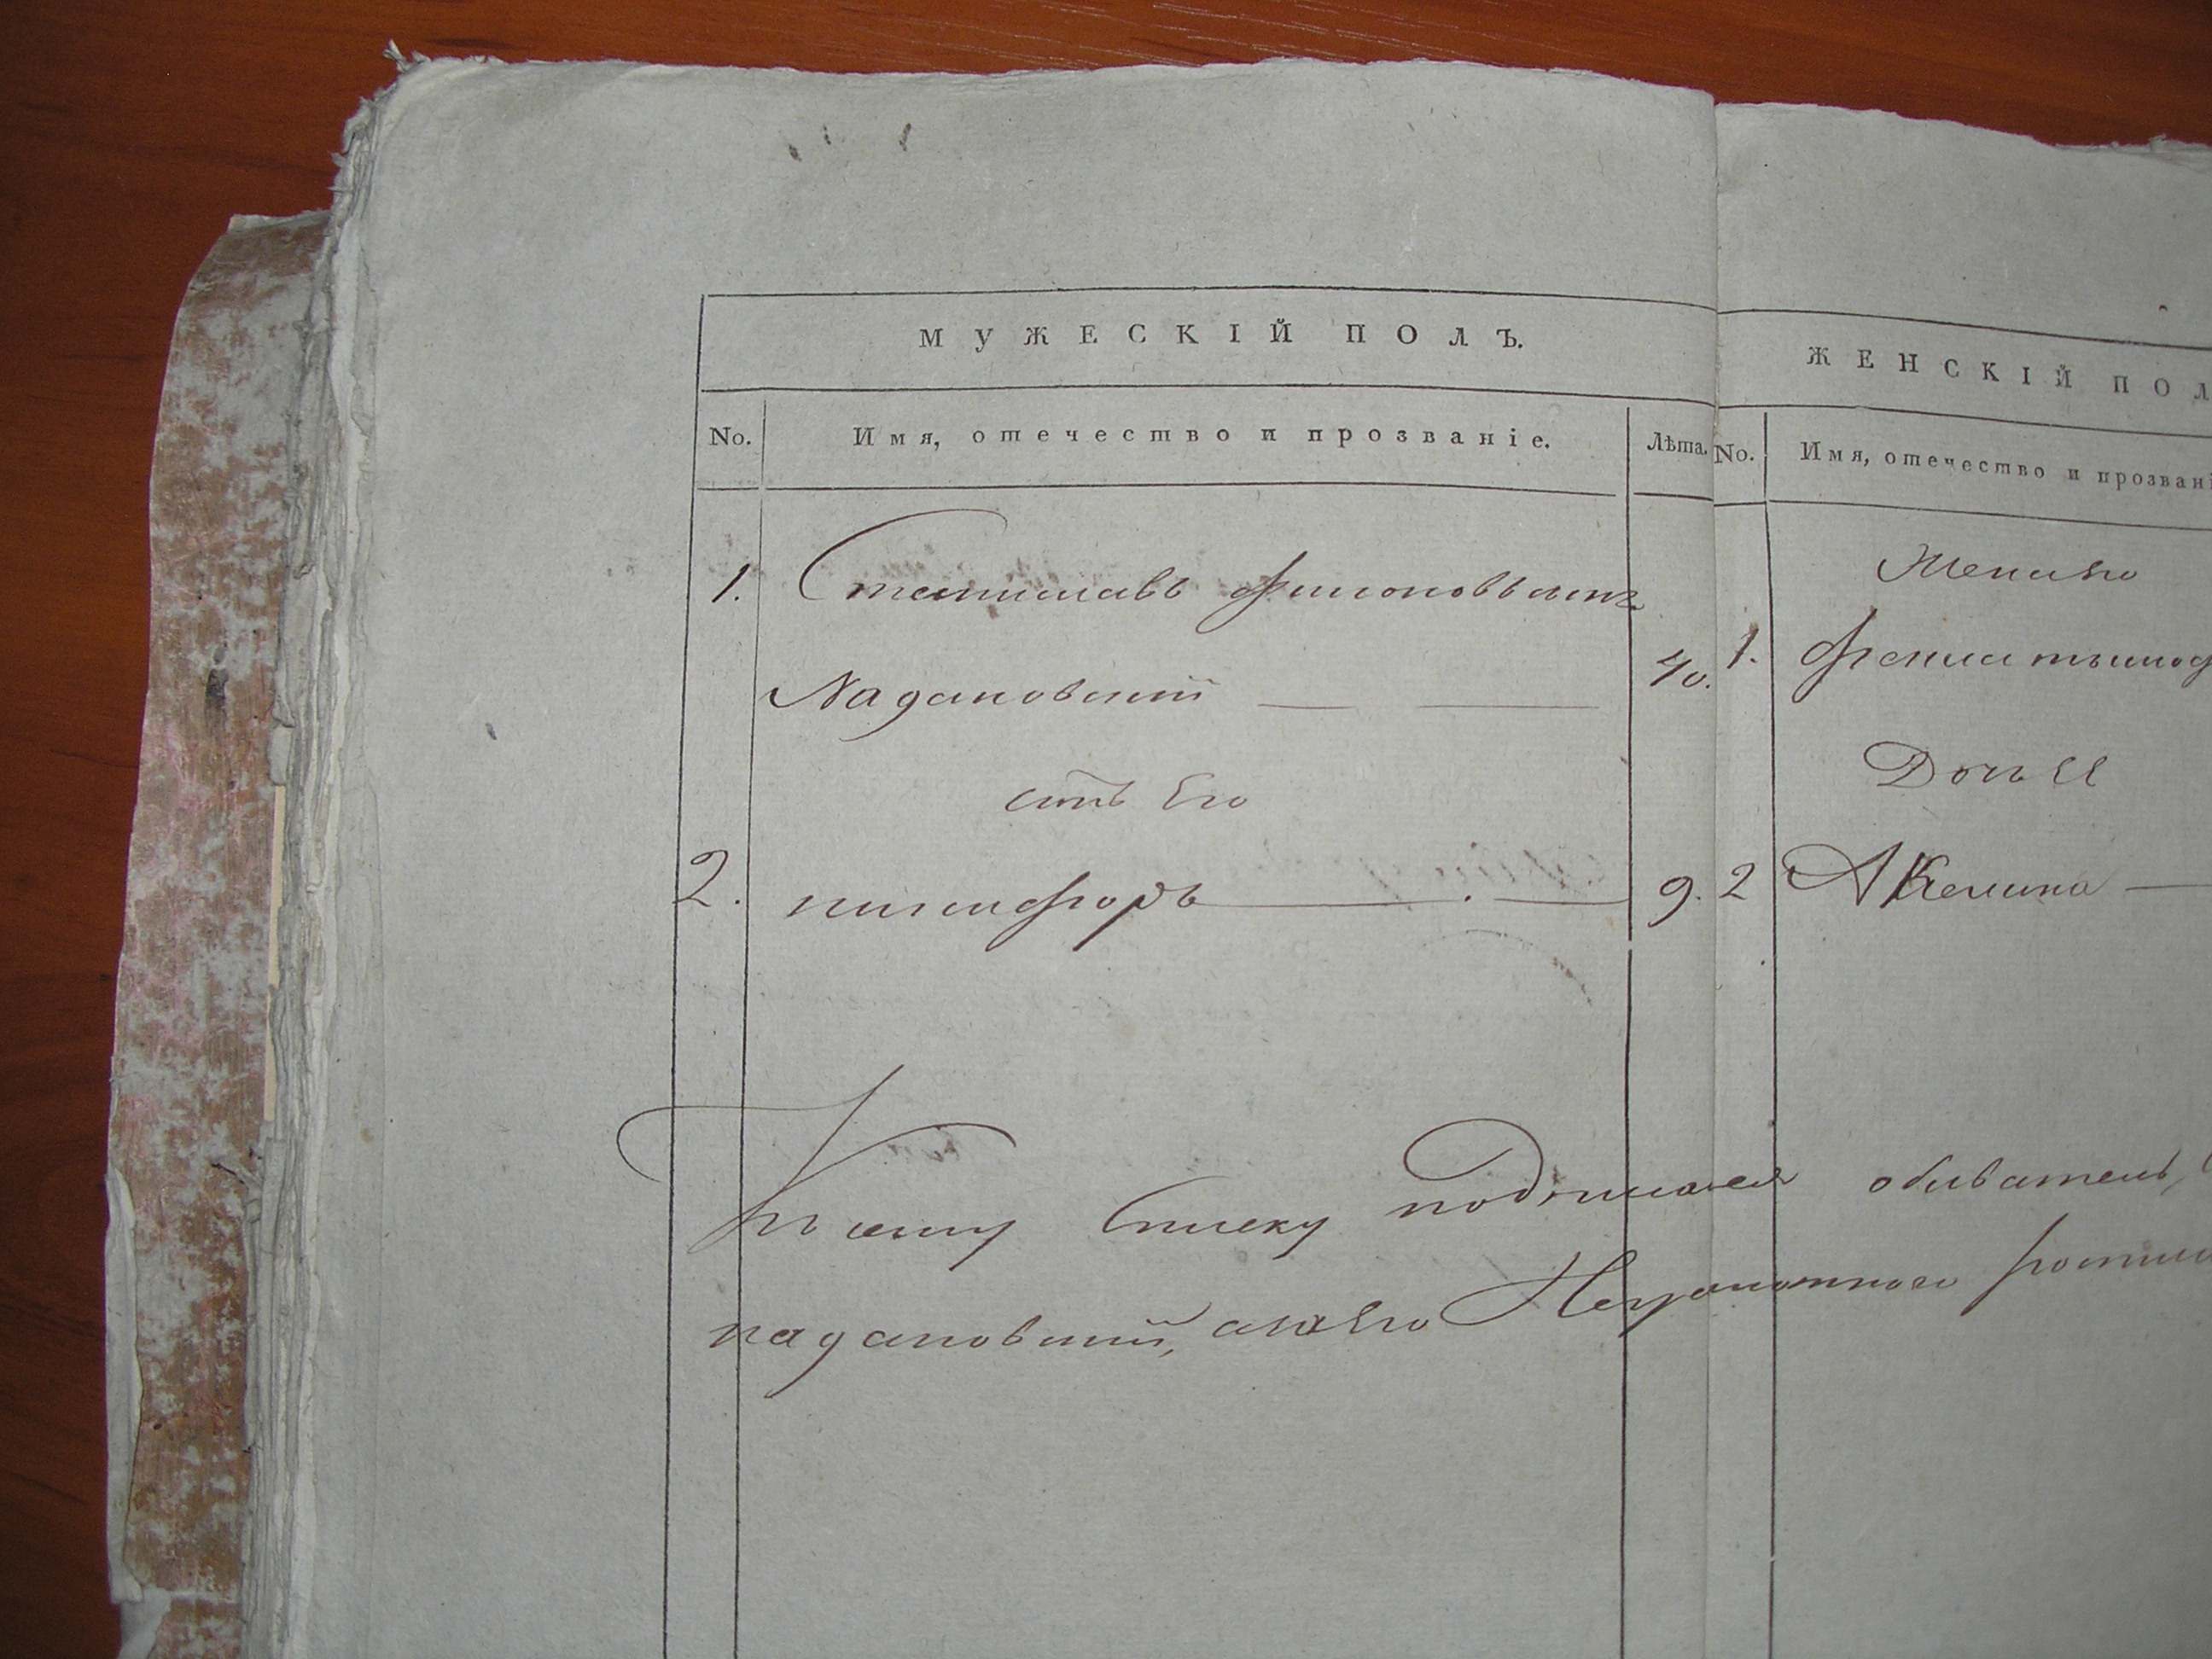 МУЖЕСКІЙ ПОЛЪ.
No. Имя, отечество и прозваніе. Лѣта.
1. Станиславъ
Кадановский 40.
сынъ Его
2. никифоръ 9.
Ксему Списку подписался обиватель,
кадановский, аза Его Неграмотнаго росписа
ЖЕНСКІЙ ПОЛ
No. Имя, отечество и прозвані
Жена его
1.
Дочь Ея
2 Акелина